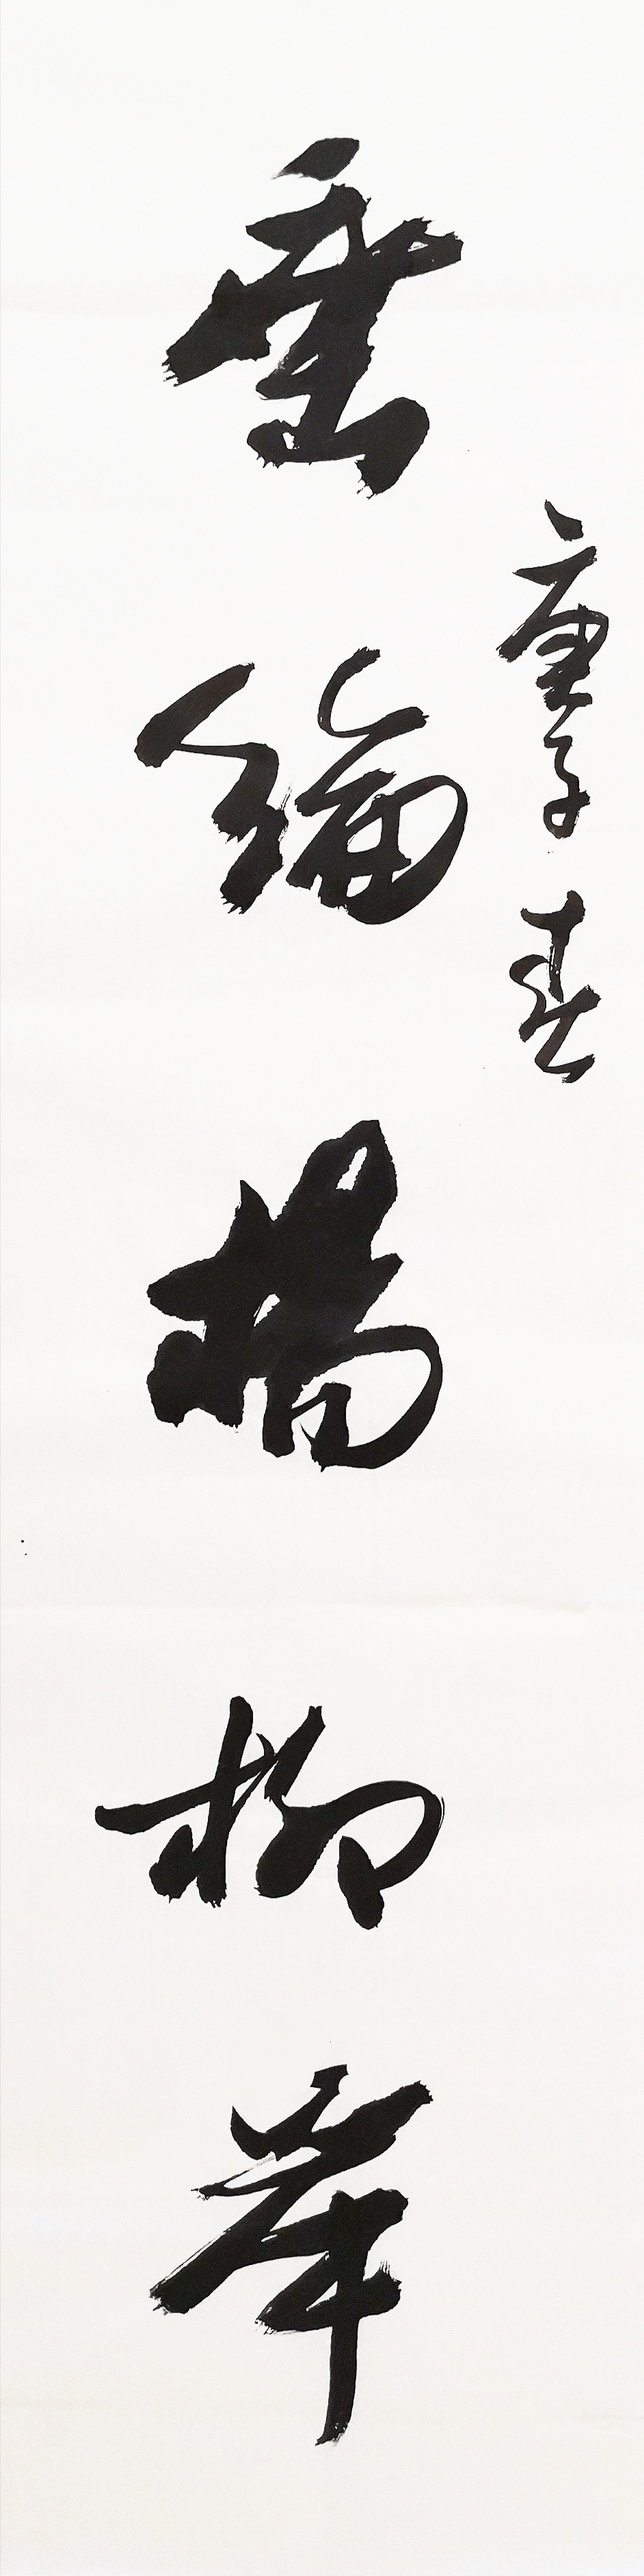 庚子春
垂綸楊柳岸